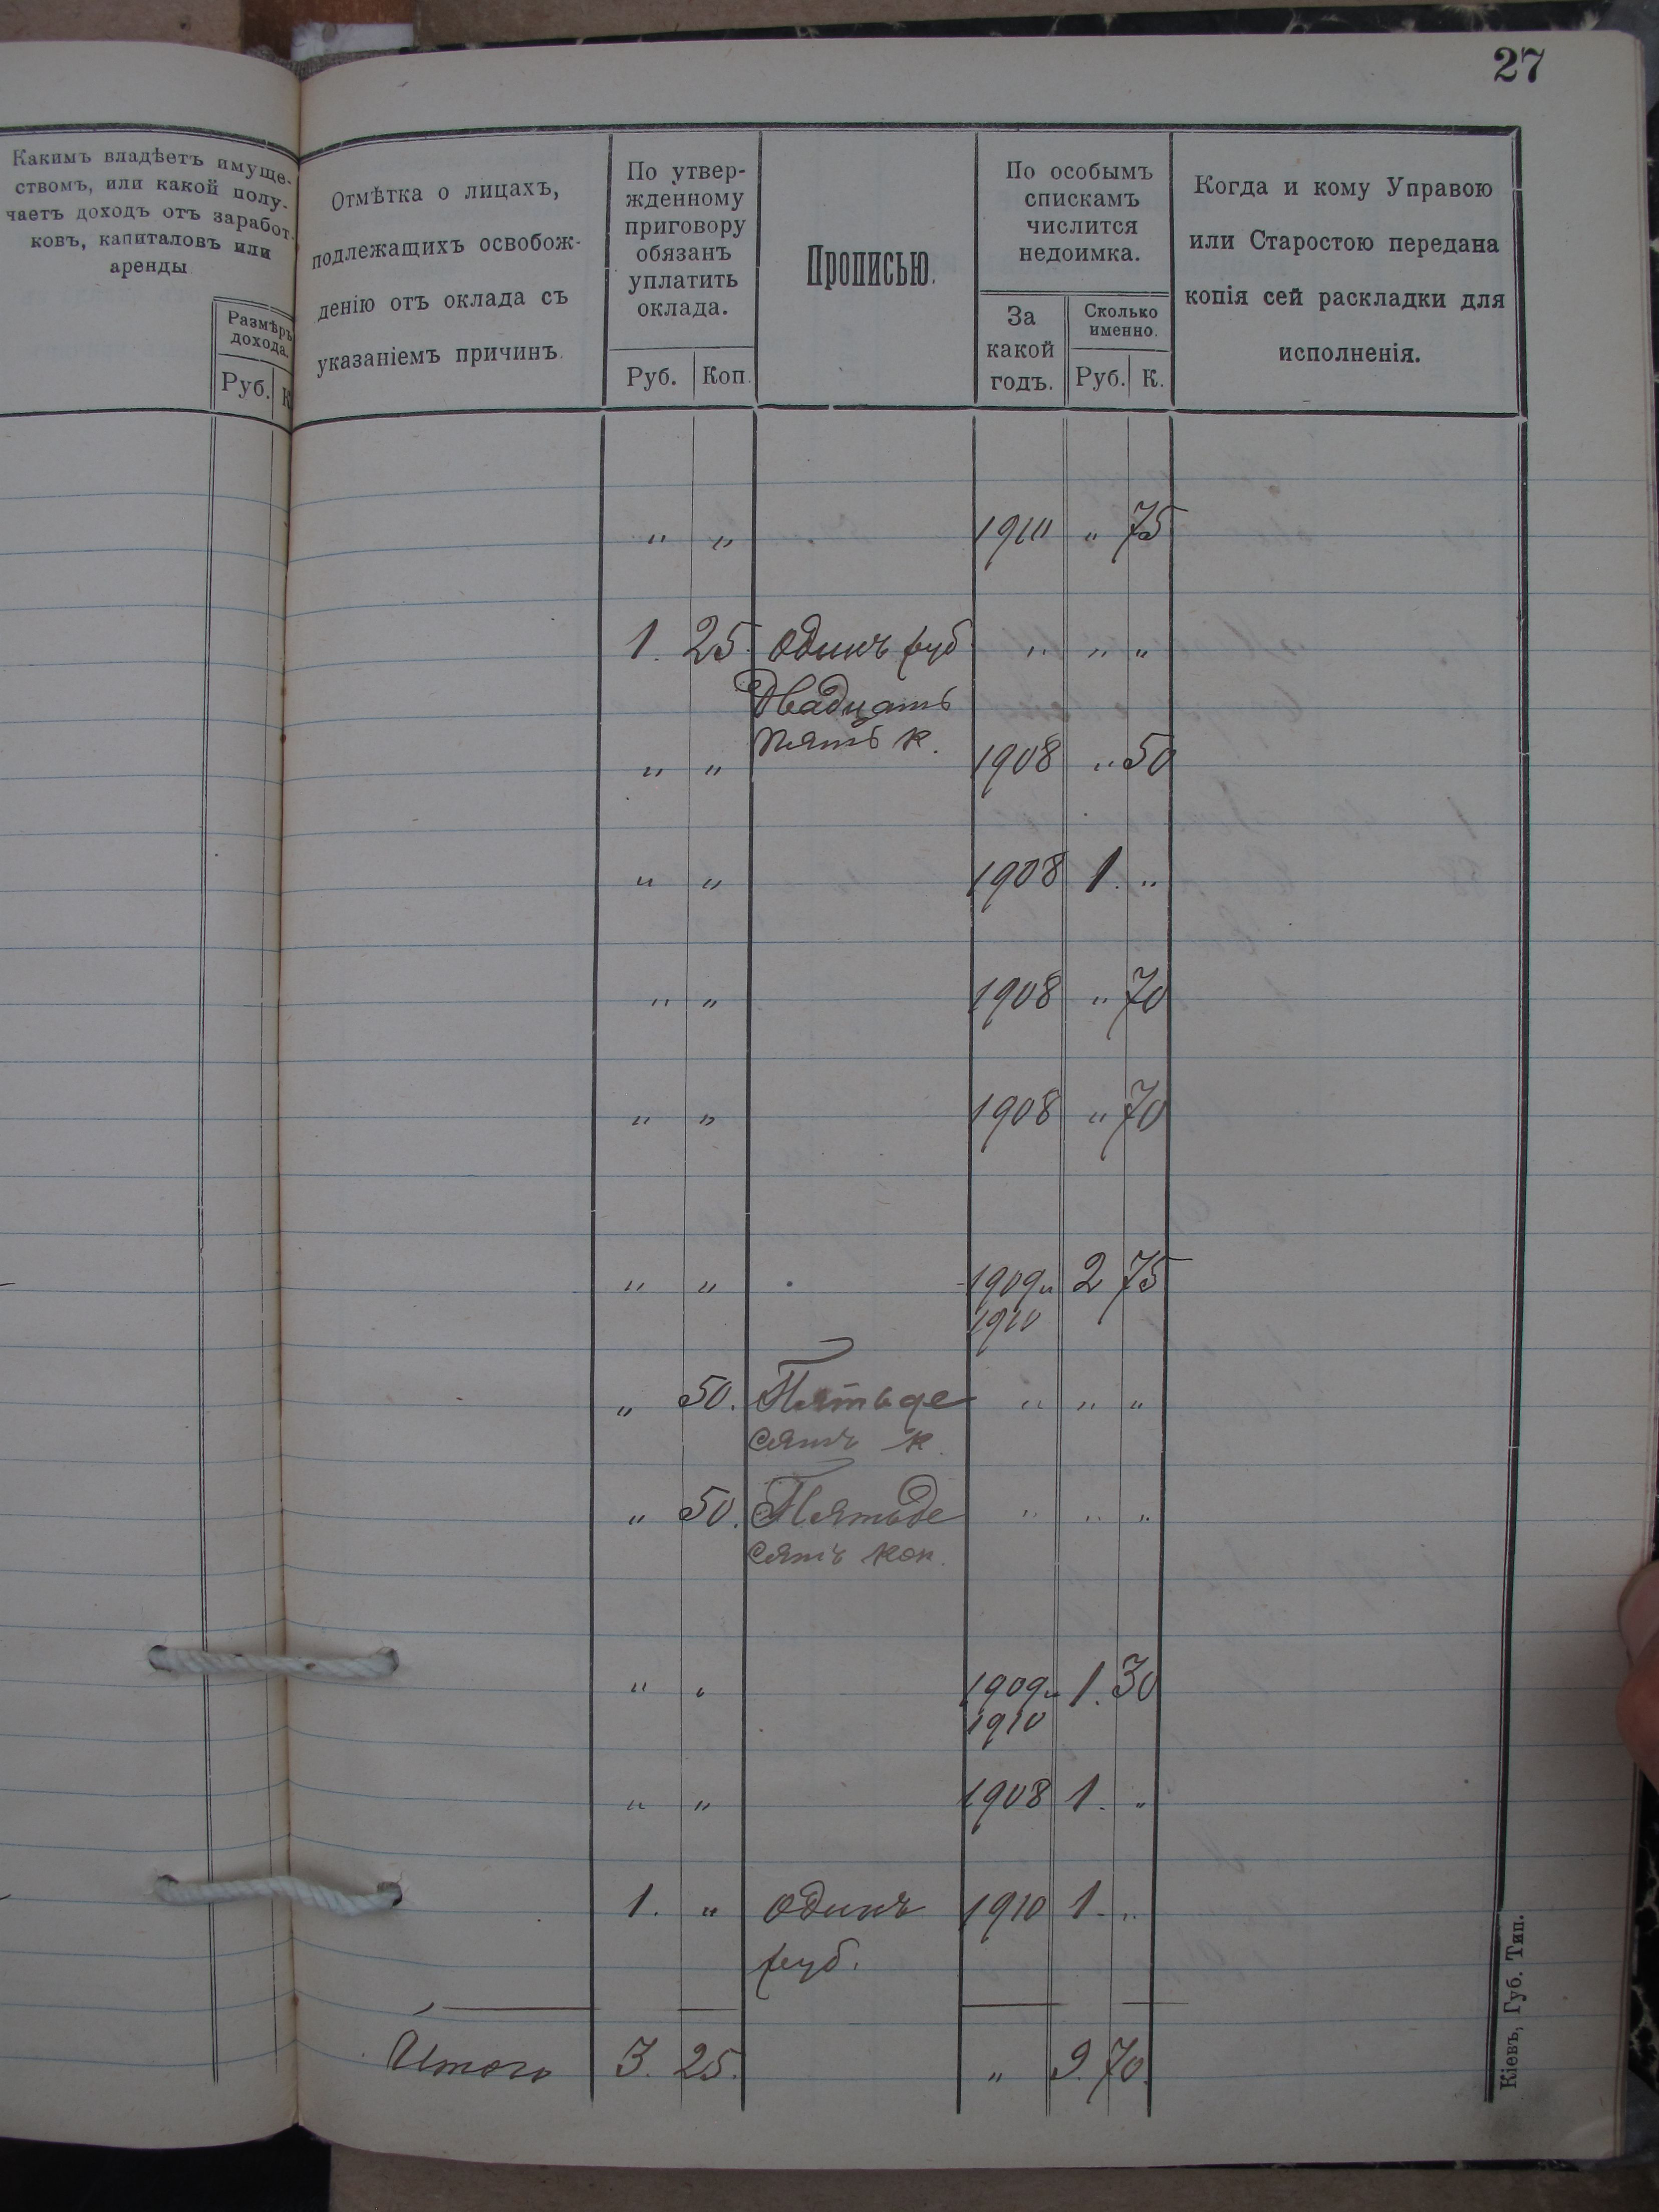 27
Какимъ владѣетъ имуще-
ствомъ, или какой полу-
чаетъ доходъ отъ заработ-
ковъ, капиталовъ или
аренды
Размѣръ
дохода.
Руб. К
Отмѣтка о лицахъ,
подлежащихъ освобож-
денію отъ оклада съ
указаніемъ причинъ.
По утвер-
жденному
приговору
обязанъ
уплатить
оклада.
Руб. Коп.
Прописью.
По особымъ
спискамъ
числится
недоимка.
За
какой
годъ.
Сколько
именно.
Руб. К.
Когда и кому Управою
или Старостою передана
копія сей раскладки для
исполненія.
" " 1910 " 75
1. 25. Одинъ руб " " "
Двадцать
пять к.
" " 1908 " 50
" " 1908 1. "
" " 1908 " 70
" " 1908 " 70
" " 1909 и 2 75
1910
" 50. Пятьде " " "
сятъ к.
" 50. Пятьде " " "
сятъ коп.
" " 1909 и 1. 30
1910
" " 1908 1. "
1. " Одинъ 1910 1. "
руб.
Итого 3. 25. " 9. 70.
Кіевъ, Губ. Тип.